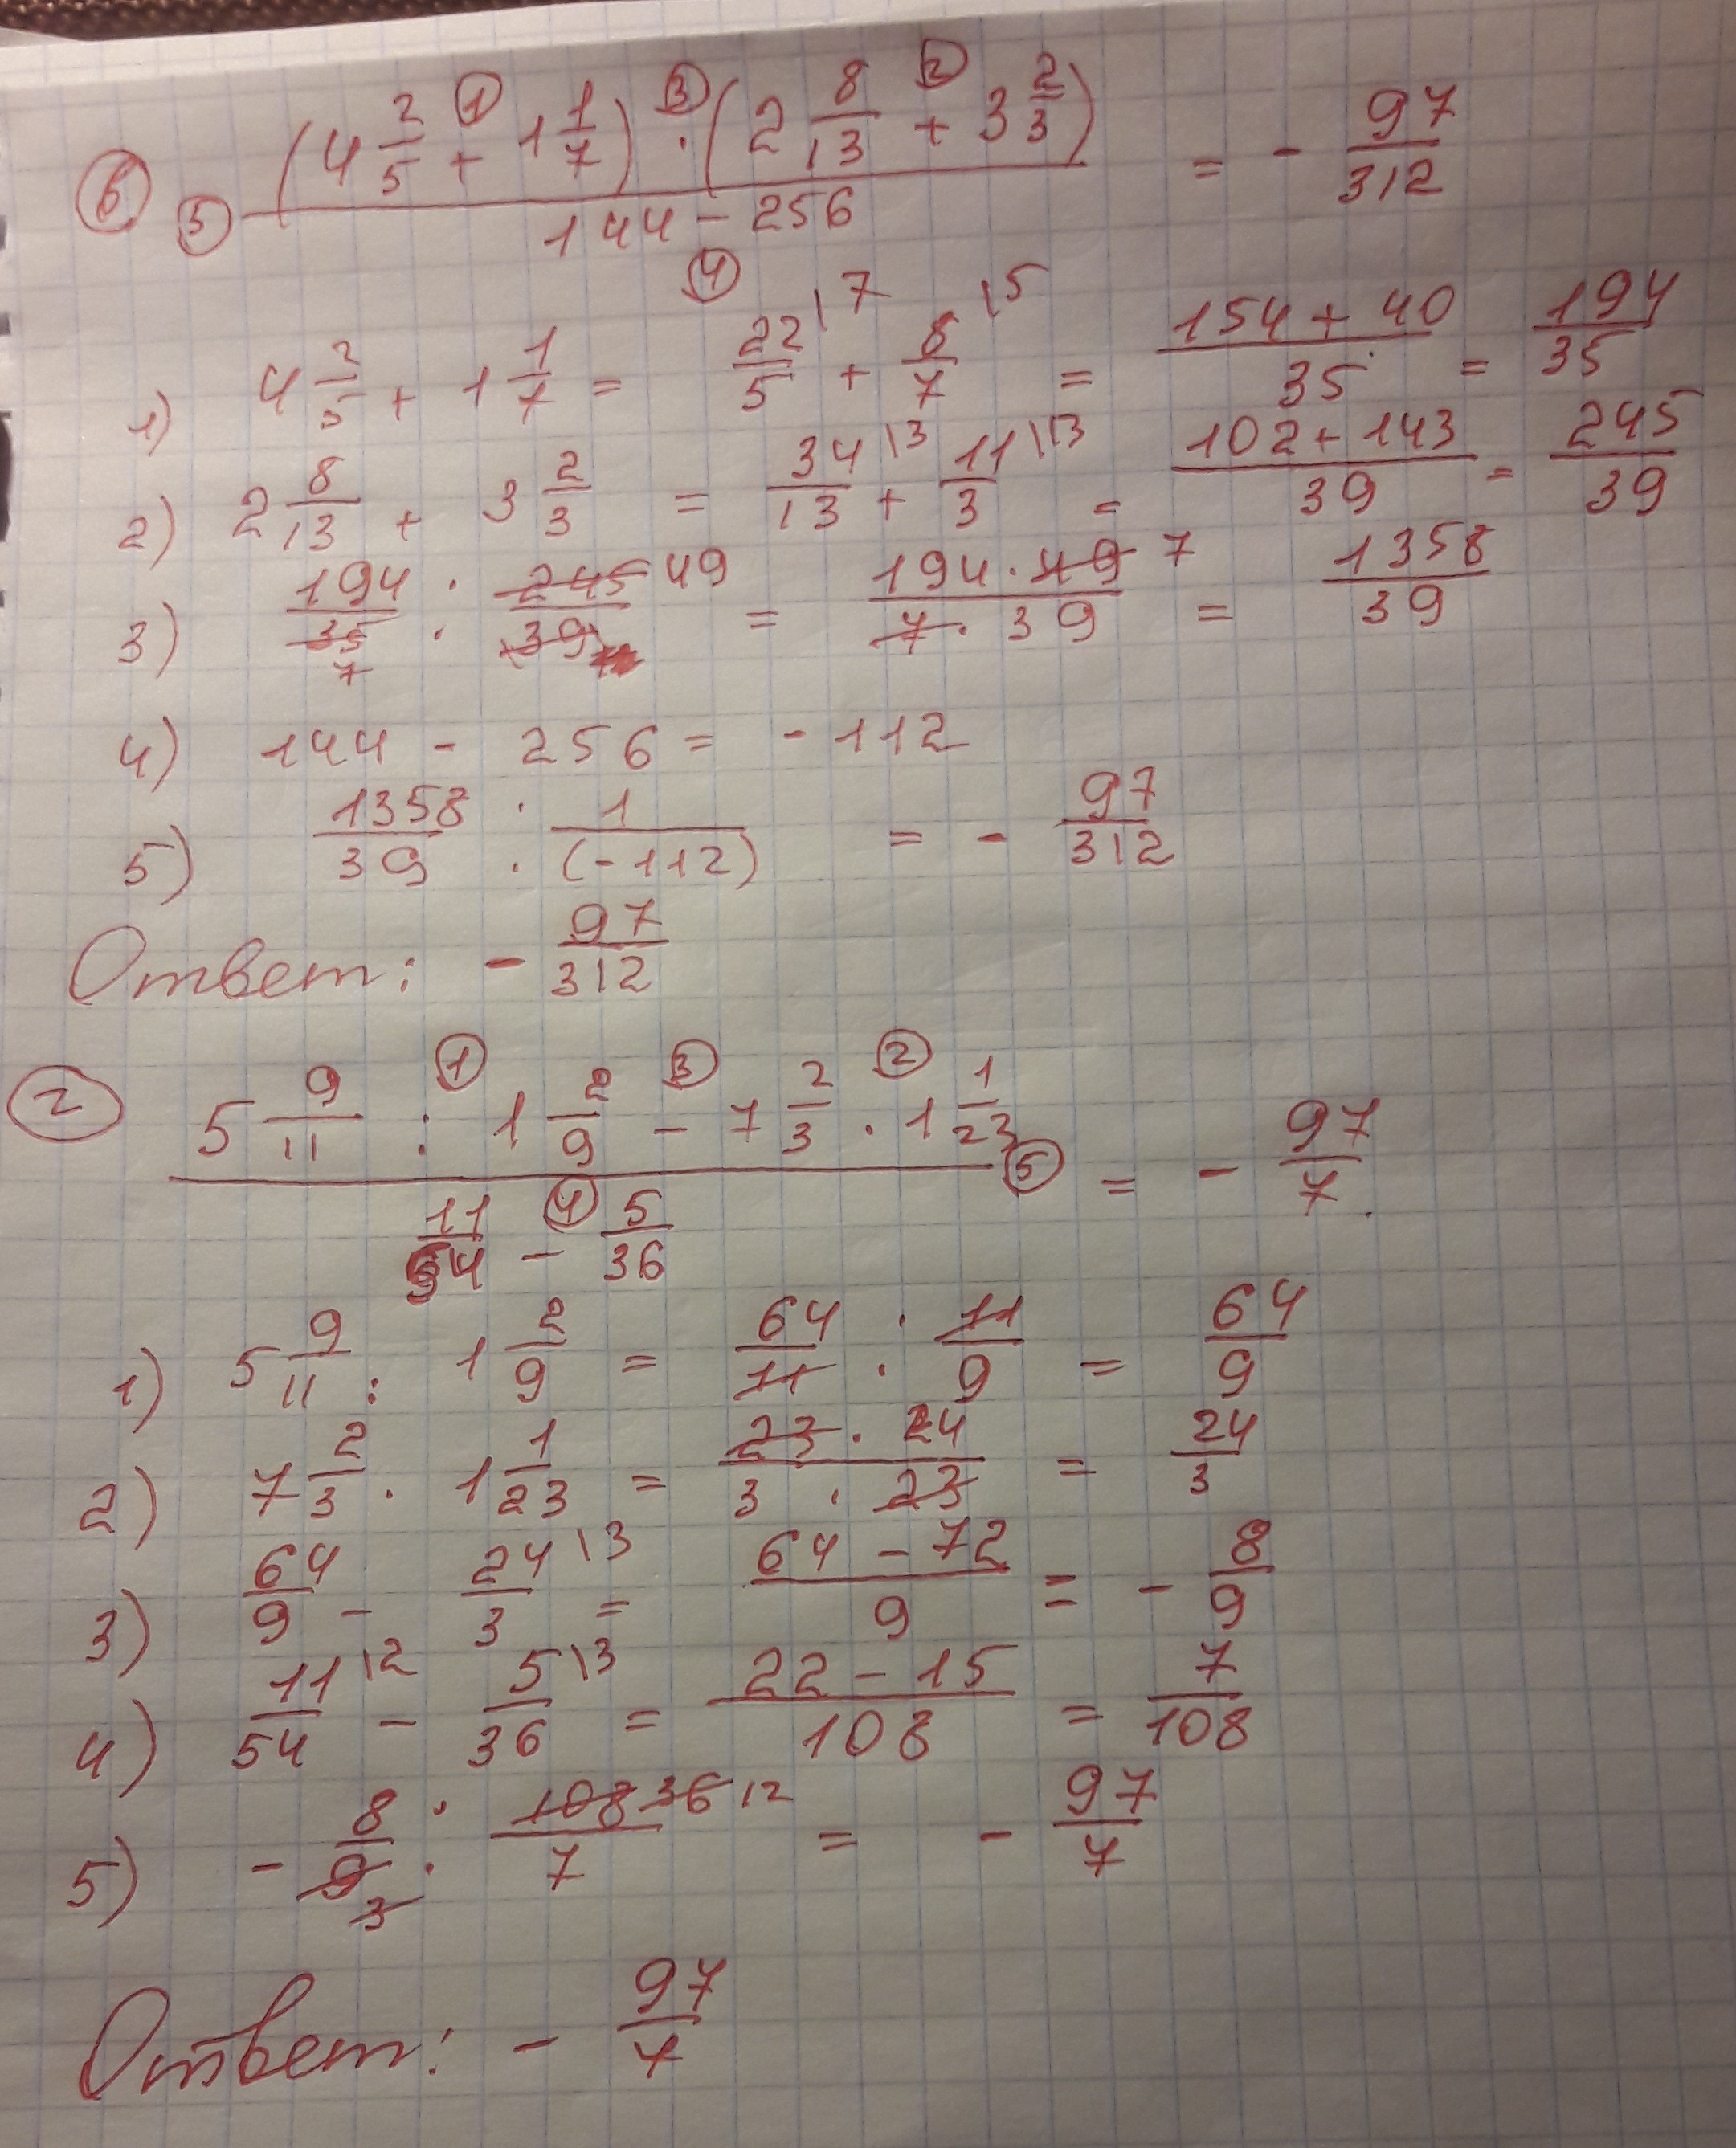 ⑥ ⑤ ((4 2/5 +① 1 1/7) ·③ (2 8/13 +② 3 2/3)) / (144 -④ 256) = - 97/312
1) 4 2/5 + 1 1/7 = 22/5 \7 + 8/7 \5 = (154 + 40)/35 = 194/35
2) 2 8/13 + 3 2/3 = 34/13 \3 + 11/3 \13 = (102 + 143)/39 = 245/39
3) 194/35 7 · 245/39 49 = (194 · 49 7)/(7 · 39) = 1358/39
4) 144 - 256 = - 112
5) 1358/39 · 1/(-112) = - 97/312
Ответ: - 97/312
② (5 9/11 :① 1 2/9 -③ 7 2/3 ·② 1 1/23) / (11/54 -④ 5/36) ⑤ = - 97/7.
1) 5 9/11 : 1 2/9 = 64/11 · 11/9 = 64/9
2) 7 2/3 · 1 1/23 = (23 · 24)/(3 · 23) = 24/3
3) 64/9 - 24/3 \3 = (64 - 72)/9 = - 8/9
4) 11/54 \2 - 5/36 \3 = (22 - 15)/108 = 7/108
5) - 8/9 3 · 108/7 36 12 = - 97/7
Ответ: - 97/7